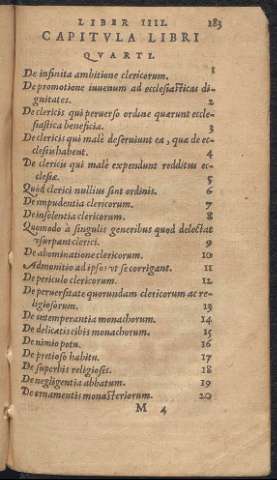 LIBER IIII. 183
CAPITVLA LIBRI
QVARTI.
De infinita ambitione clericorum. 1
De promotione iuuenum ad ecclesiasticas di-
gnitates. 2
De clericis qui peruerso ordine quærunt eccle-
siastica beneficia. 3
De clericis qui malè deseruiunt ea, quæ de ec-
clesiis habent. 4
De clericis qui malè expendunt redditus ec-
clesiæ. 5
Quòd clerici nullius sint ordinis. 6
De impudentia clericorum. 7
De insolentia clericorum. 8
Quomodo à singulis generibus quod delectat
vsurpant clerici. 9
De abominatione clericorum. 10
Admonitio ad ipsos vt se corrigant. 11
De periculo clericorum. 12
De peruersitate quorundam clericorum ac re-
ligiosorum. 13
De intemperantia monachorum. 14
De delicatis cibis monachorum. 15
De nimio potu. 16
De pretioso habitu. 17
De superbis religiosis. 18
De negligentia abbatum. 19
De ornamentis monasteriorum. 20
M 4